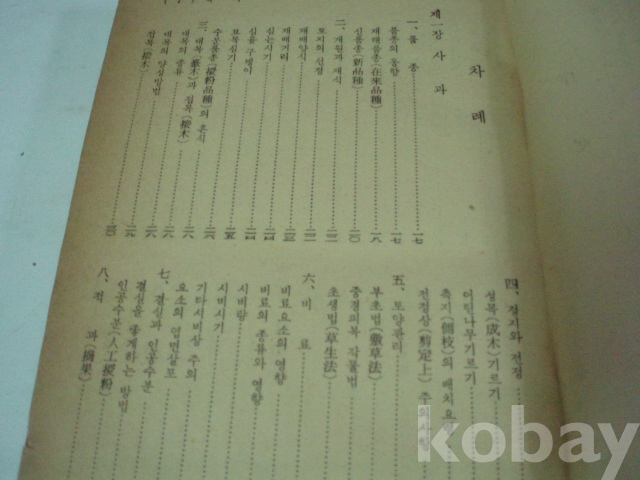 차례
제一장 사과
一、품종
품종의 동향
재래품종(在來品種)
신품종(新品種)
二、개원과 재식
토지의 선정
재배양식
재배거리
심는시기
심을 구멍이
묘목심기
수분품종(授粉品種)의 혼식
三、대목(臺木)과 접목(椄木)
대목의 종류
대목의 양성방법
접목(椄木)
四、정지와 전정
성목(成木)기르기
어린나무기르기
측지(側枝)의 배치요
전정상(剪定上) 주의사항
五、토양관리
부초법(敷草法)
중경피복 작물법
초생법(草生法)
六、비료
비료요소의 영향
비료의 종류와 영향
시비량
시비시기
기타시비상 주의
요소의 엽면살포
七、결실과 인공수분
결실을 좋게하는 방법
인공수분(人工授粉)
八、적과(摘果)
kobay